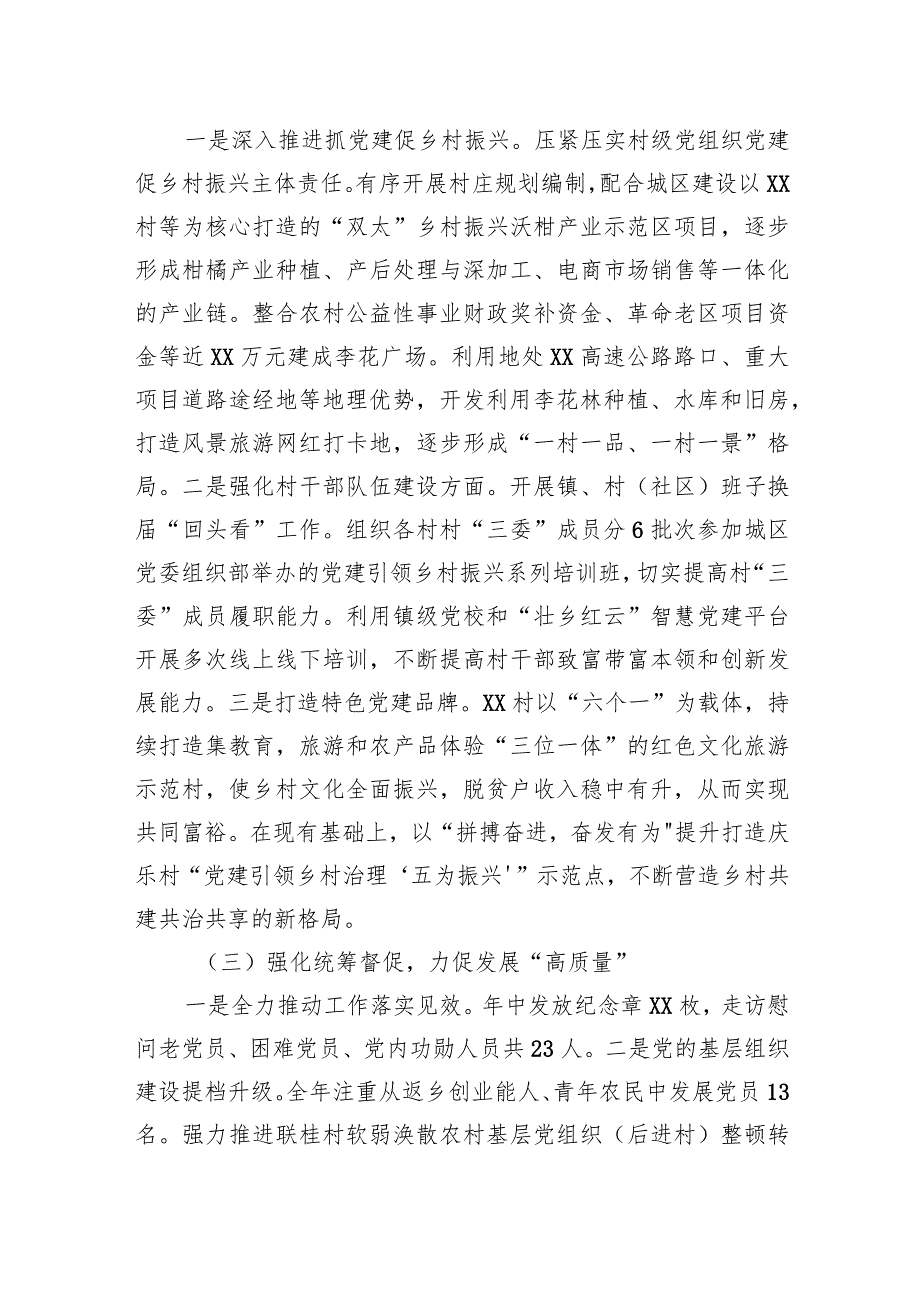 一是深入推进抓党建促乡村振兴。压紧压实村级党组织党建
促乡村振兴主体责任。有序开展村庄规划编制，配合城区建设以 XX
村等为核心打造的“双太”乡村振兴沃柑产业示范区项目，逐步
形成柑橘产业种植、产后处理与深加工、电商市场销售等一体化
的产业链。整合农村公益性事业财政奖补资金、革命老区项目资
金等近 XX 万元建成李花广场。利用地处 XX 高速公路路口、重大
项目道路途经地等地理优势，开发利用李花林种植、水库和旧房，
打造风景旅游网红打卡地，逐步形成“一村一品、一村一景”格
局。二是强化村干部队伍建设方面。开展镇、村（社区）班子换
届“回头看”工作。组织各村村“三委”成员分 6 批次参加城区
党委组织部举办的党建引领乡村振兴系列培训班，切实提高村“三
委”成员履职能力。利用镇级党校和“壮乡红云”智慧党建平台
开展多次线上线下培训，不断提高村干部致富带富本领和创新发
展能力。三是打造特色党建品牌。XX 村以“六个一”为载体，持
续打造集教育，旅游和农产品体验“三位一体”的红色文化旅游
示范村，使乡村文化全面振兴，脱贫户收入稳中有升，从而实现
共同富裕。在现有基础上，以“拼搏奋进，奋发有为"提升打造庆
乐村“党建引领乡村治理‘五为振兴'”示范点，不断营造乡村共
建共治共享的新格局。
（三）强化统筹督促，力促发展“高质量”
一是全力推动工作落实见效。年中发放纪念章 XX 枚，走访慰
问老党员、困难党员、党内功勋人员共 23 人。二是党的基层组织
建设提档升级。全年注重从返乡创业能人、青年农民中发展党员 13
名。强力推进联桂村软弱涣散农村基层党组织（后进村）整顿转